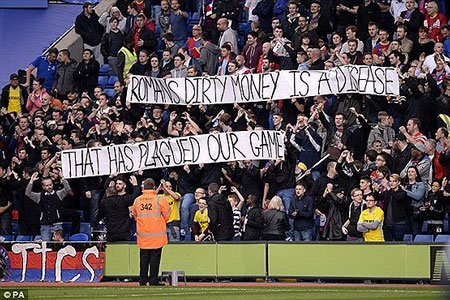 ROMANS DIRTY MONEY IS A DISEASE
THAT HAS PLAGUED OUR GAME
342
TCS
© PA